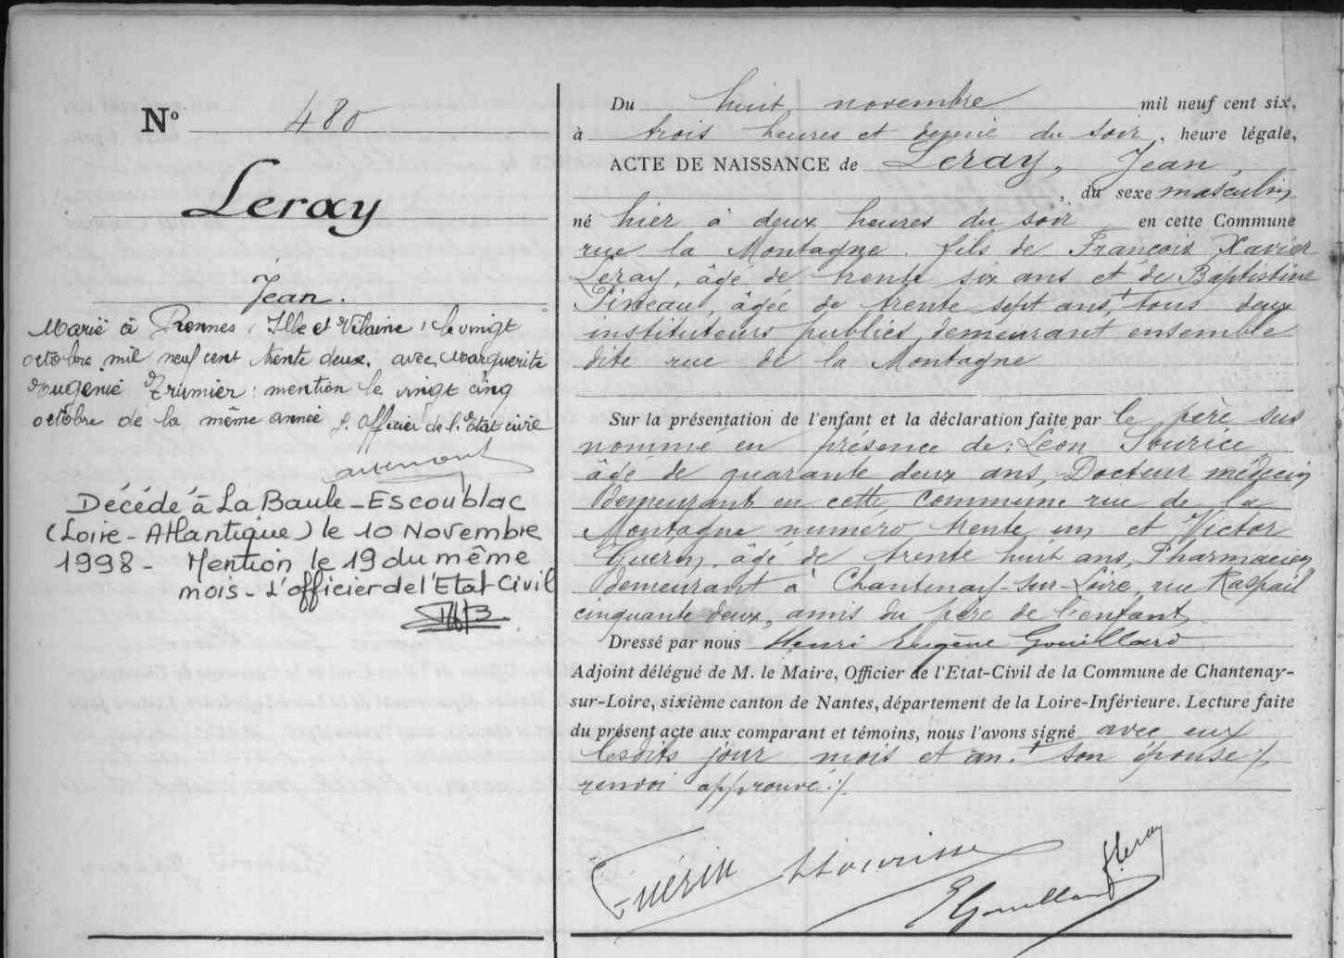 Nº 480
Leray
Jean.
Marié à Rennes, Ille et Vilaine, le vingt
octobre mil neuf cent trente deux, avec Marguerite
Eugenie mention le vingt cinq
octobre de la même année L'officier de l'Etat civil
Décédé à La Baule-Escoublac
(Loire-Atlantique) le 10 Novembre
1998 - Mention le 19 du même
mois - L'officier de l'Etat Civil
Du huit novembre mil neuf cent six,
à trois heures et demie du soir, heure légale,
ACTE DE NAISSANCE de Leray, Jean,
du sexe masculin
né hier à deux heures du soir en cette Commune
rue la Montagne. fils de François Xavier
Leray, âgé de trente six ans et de Baptistine
Pineau, âgée de trente sept ans, + tous deux
instituteurs publics demeurant ensemble
dite rue de la Montagne
Sur la présentation de l'enfant et la déclaration faite par le père sus
nommé en présence de: Léon Sourice
âgé de quarante deux ans, Docteur médecin
demeurant en cette commune rue de la
Montagne numéro trente un et Victor
Guerin, âgé de trente huit ans, Pharmacien
demeurant à Chantenay-sur-Loire, rue Raspail
cinquante deux, amis du père de l'enfant
Dressé par nous Henri Eugène Gouillard
Adjoint délégué de M. le Maire, Officier de l'Etat-Civil de la Commune de Chantenay-
sur-Loire, sixième canton de Nantes, département de la Loire-Inférieure. Lecture faite
du présent acte aux comparant et témoins, nous l'avons signé avec eux
lesdits jour mois et an. + son épouse /.
renvoi approuvé ./.
Guérin
EGouillard
Leray